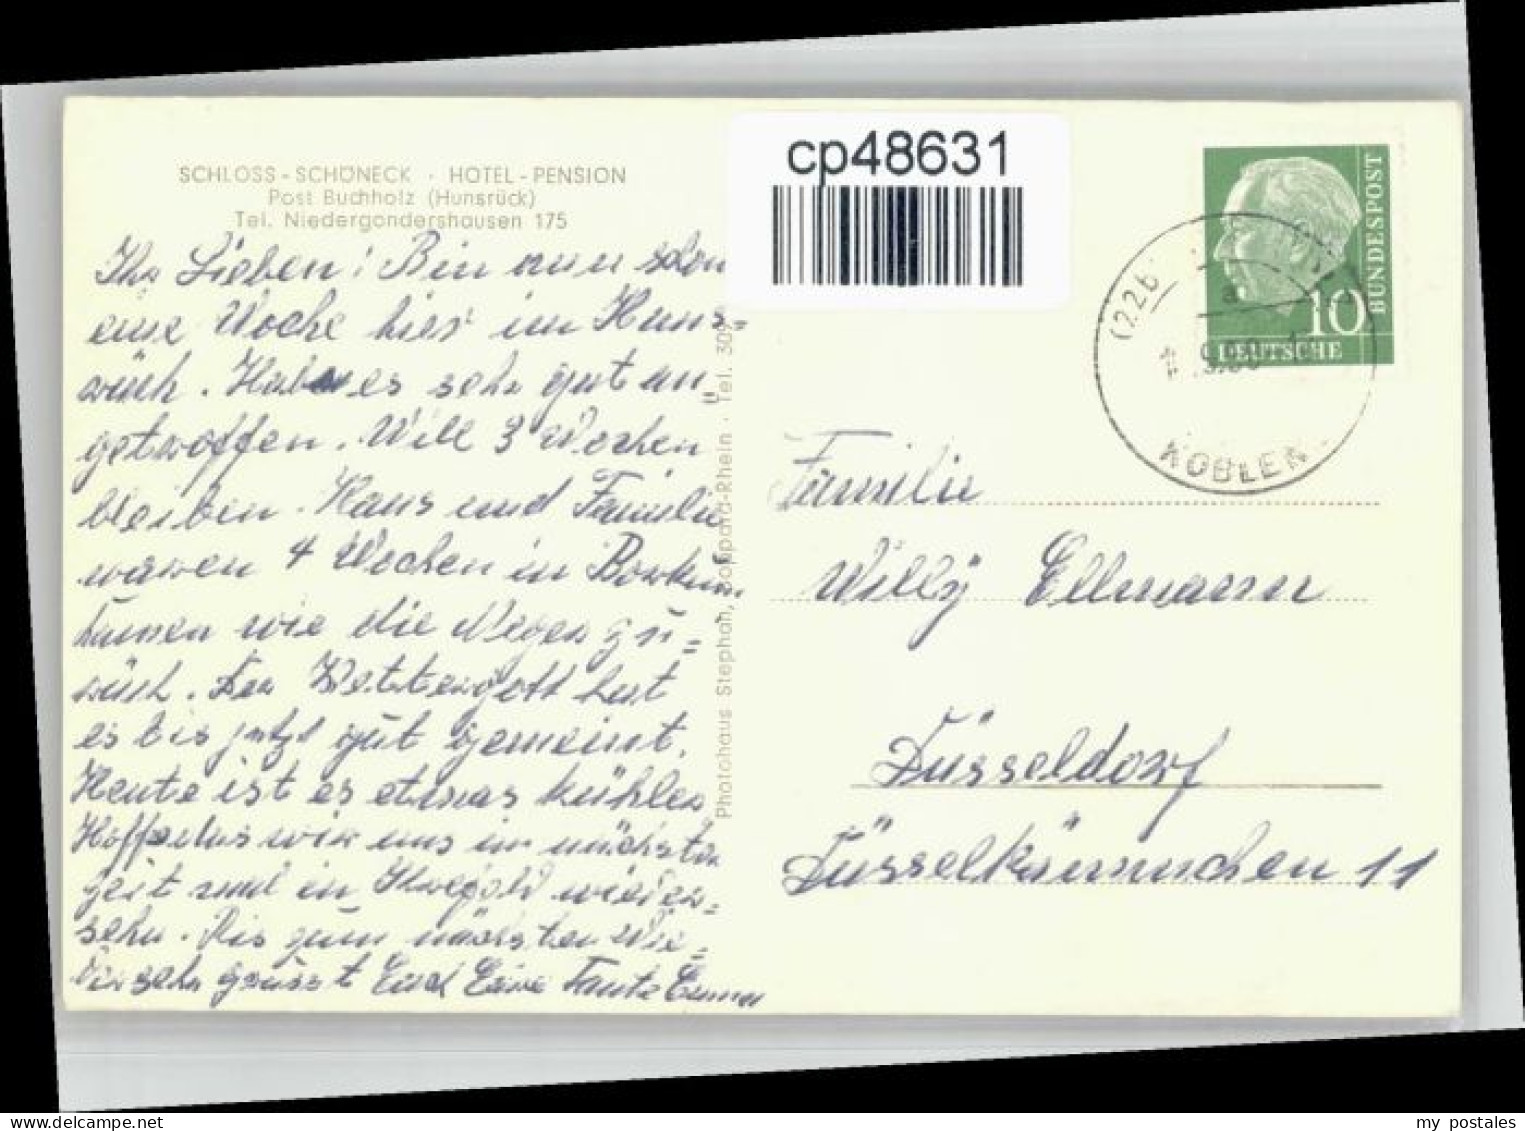 SCHLOSS-SCHÖNECK · HOTEL-PENSION
Post Buchholz (Hunsrück)
Tel. Niedergondershausen 175
Ihr Lieben! Bin nun schon
eine Woche hier im Huns-
rück. Habe es sehr gut an
getroffen. Will 3 Wochen
bleiben. Haus und Familie
waren 4 Wochen in Borkum
kamen wie die Neger zu-
rück. Der Wettergott hat
es bis jetzt gut gemeint.
Heute ist es etwas kühler
Hoffe das wir uns im nächsten
Zeit und in wieder-
sehn. Bis zum nächsten Wie-
dersehn grüsst Euch Eure Tante Emma
Photohaus Stephan, Boppard-Rhein · Tel. 309
cp48631
10
BUNDESPOST
DEUTSCHE
(22b)
KOBLEN
Familie
Willy Ellmann
Düsseldorf
Düsselkämmchen 11
my postales